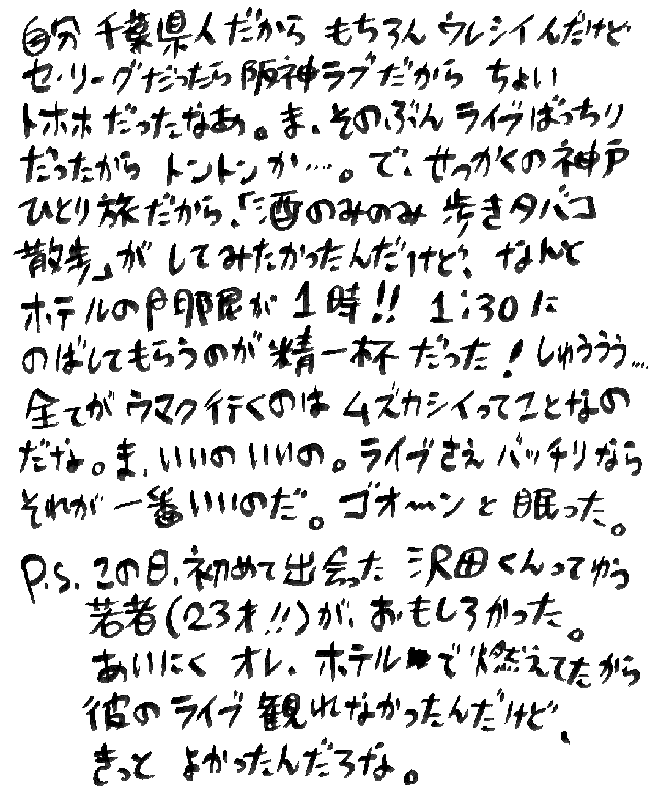 自分 千葉県人だから もちろん ウレシイんだけど
セ・リーグだったら 阪神ラブだから ちょい
トホホ だったなあ。ま、そのぶん ライブばっちり
だったから トントンか…。で、せっかくの 神戸
ひとり 旅だから、「酒のみのみ 歩きタバコ
散歩」が してみたかったんだけど、なんと
ホテルの 門限が 1時!! 1:30に
のばしてもらうのが 精一杯 だった! しゅううう…
全てが ウマク 行くのは ムズカシイってことなの
だな。ま、いいの いいの。ライブさえ バッチリなら
それが 一番いいのだ。ゴオーンと 眠った。
P.S. この日、初めて 出会った 沢田くんってゆう
若者(23才!!)が、おもしろかった。
あいにく オレ、ホテルで 燃えてたから
彼の ライブ 観れなかったんだけど、
きっと よかったんだろな。